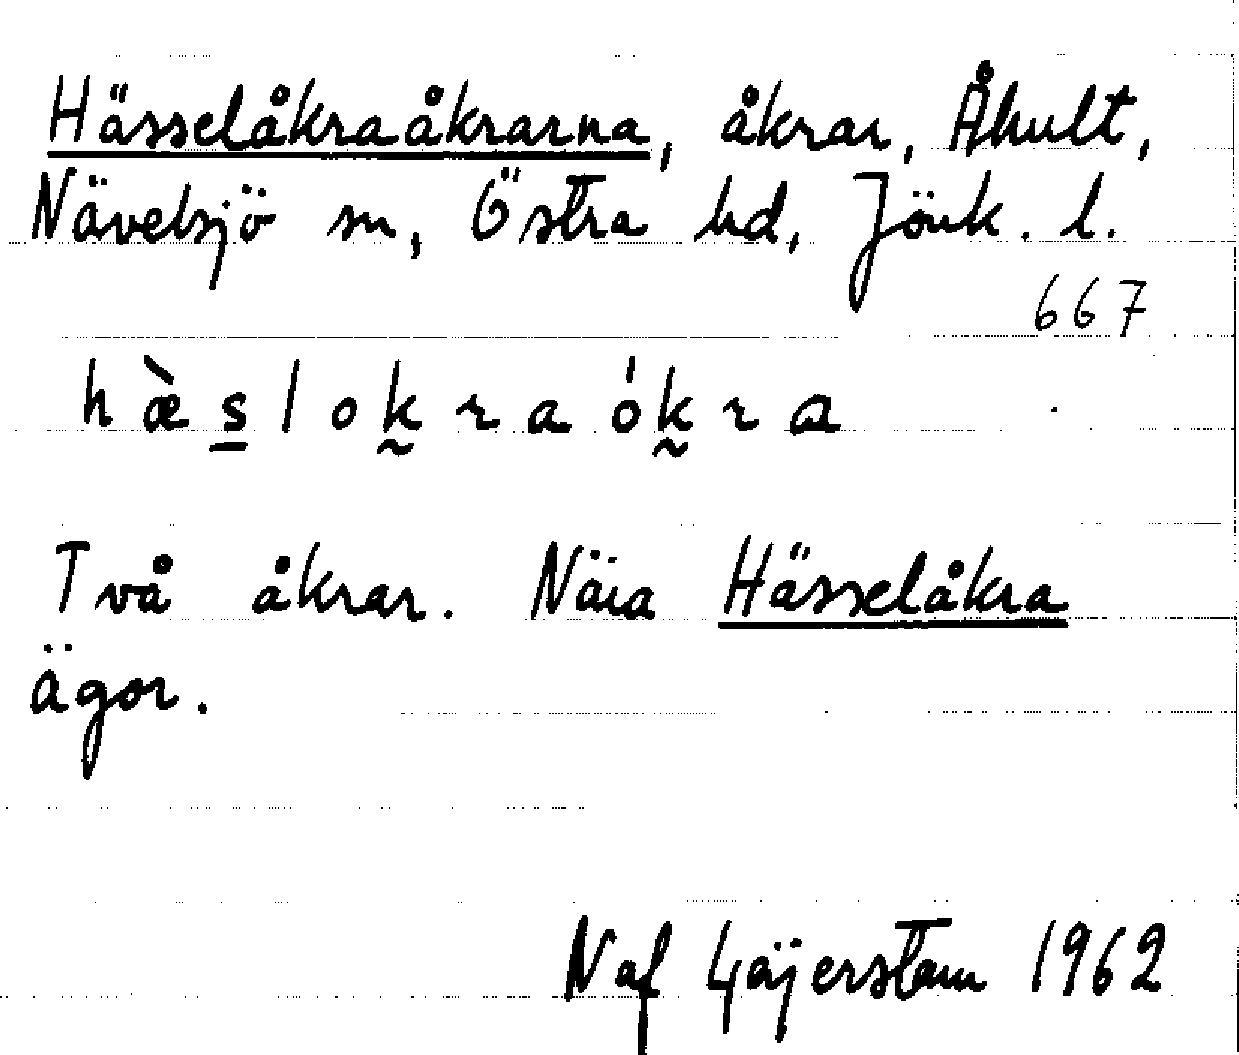 Hässelåkraåkrarna, åkrar, Åhult,
Nävelsjö sn, Östra hd, Jönk. l.
667
hæ̀s̲lokr̰aókr̰a
Två åkrar. Nära Hässelåkra
ägor.
Naf Gäjerstam 1962